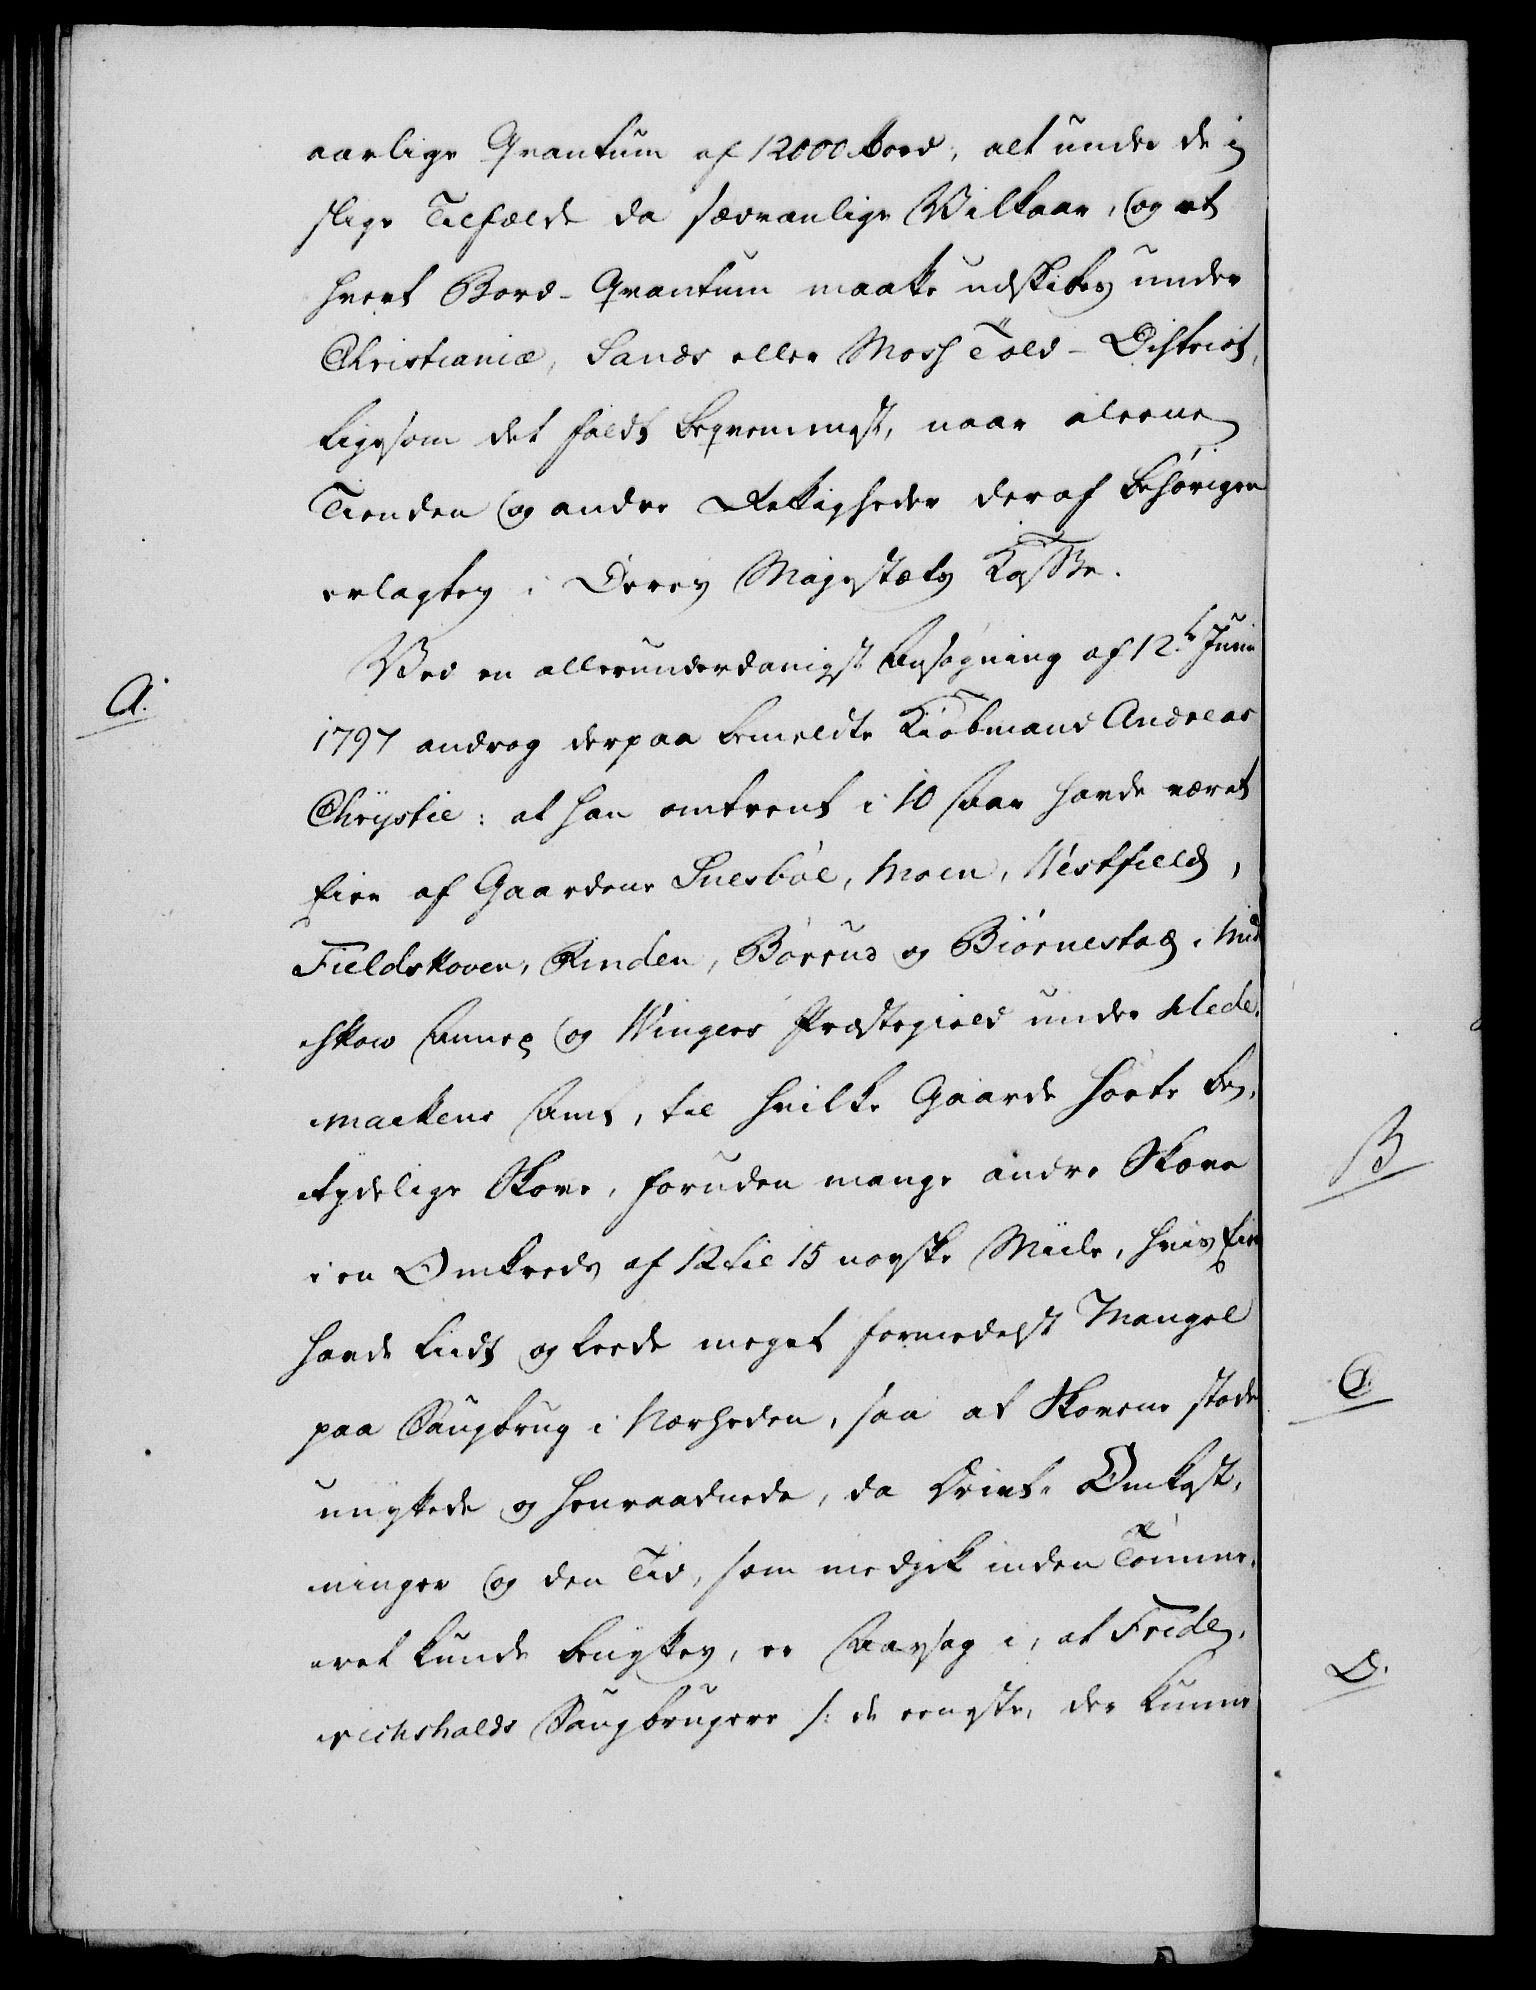 aarlige Qvantum af 12000 Bord, alt under de i
slige Tilfælde da sædvanlige Vilkaar, og at
hvert Bord-Qvantum maatte udskibes under
Christianiæ, Sands eller Moss Told-District,
ligesom det faldt beqvemmest, naar aleene
Tienden og andre Rettigheder deraf behørigen
erlagtes i Deres Majestæts Kasse.
A.
Ved en allerunderdanigst Ansøgning af 12te Junii
1797 androg derpaa bemeldte Kiøbmand Andreas
Chrystie: at han omtrent i 10 Aar havde været
Eier af Gaardene Snesbøl, Moen, Westfield,
Fieldskoven, Rinden, Børrud og Biørnestad i Mid
skow Annex og Wingers Præstegield under Hede-
markens Amt, til hvilke Gaarde hørte be-
tydelige Skove, foruden mange andre Skove
i en Omkreds af 12 til 15 norske Miile, hvis Eier
havde liidt og leede meget formedelst Mangel
paa Saugbrug i Nærheden, saa at Skovene stode
unyttede og henraadnede, da Drivt- Omkost-
ninger og den Tid, som medgik inden Tømme-
ret kunde benyttes, er Aarsag i, at Fride-
richshalds Saugbrugere /: de eeneste, der kunne
B
C.
D.